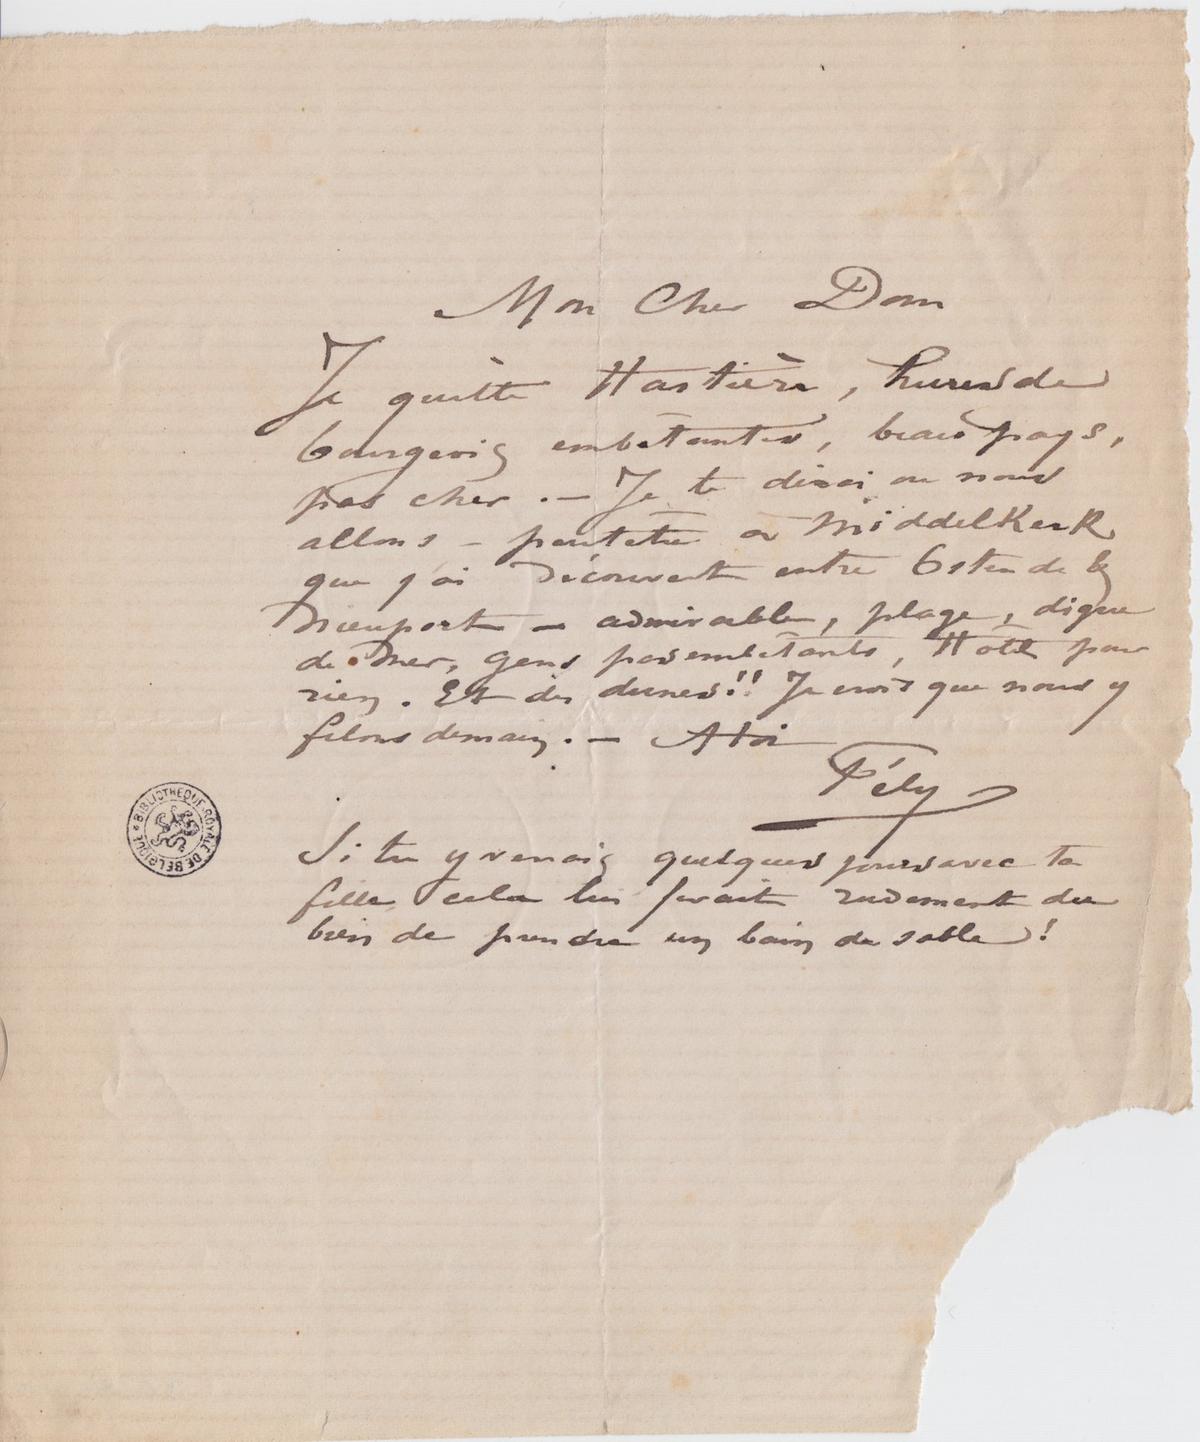 Mon Cher Dom
Je quitte Hastière, hures de
bourgeois embêtantes, beau pays,
pas cher. — Je te dirai ou nous
allons – peutetre a Middelkerk
que j'ai découvert entre Ostende &
Nieuport — admirable, plage, digue
de Mer, gens pas embêtants, Hotel pour
rien. Et des dunes!! Je crois que nous y
filons demain. — A toi
Fély
BIBLIOTHEQUE ROYALE DE BELGIQUE
Si tu y venais quelques jours avec ta
fille cela lui ferait rudement du
bien de prendre un bain de sable!